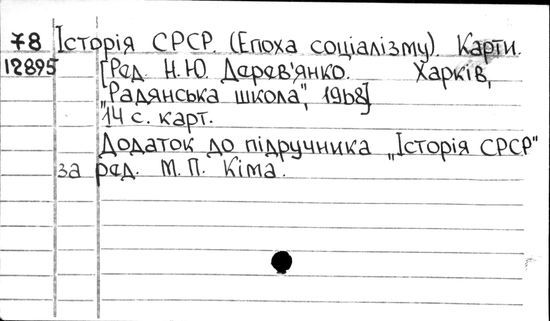 78 Історія СРСР. (Епоха соціалізму). Карти.
12895 [Ред. Н.Ю. Дерев'янко. Харків,
„Радянська школа", 1968]
14 с. карт.
Додаток до підручника „Історія СРСР"
за ред. М.П. Кіма.